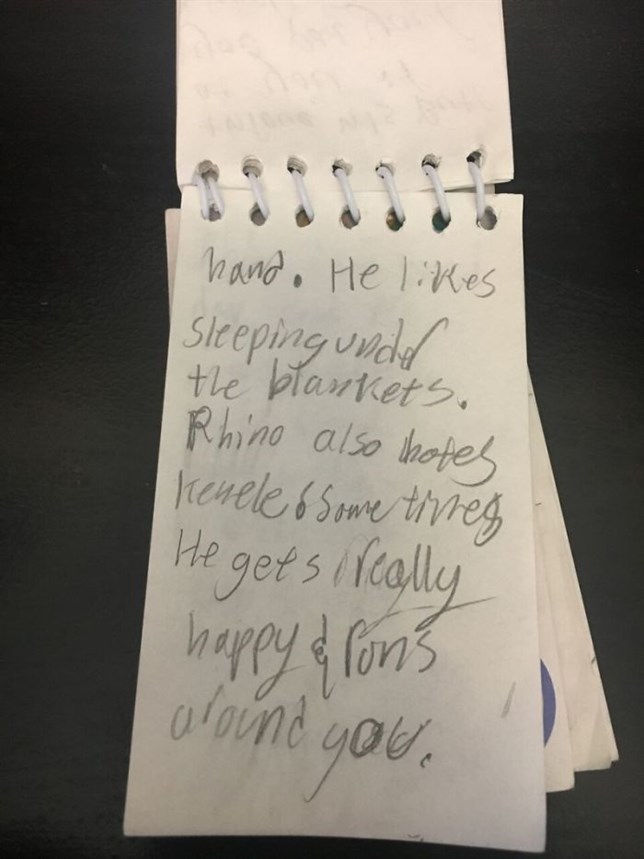 hand. He likes
sleeping under
the blankets.
Rhino also hates
kenele & Sometimes
He gets really
happy & rons
around you.